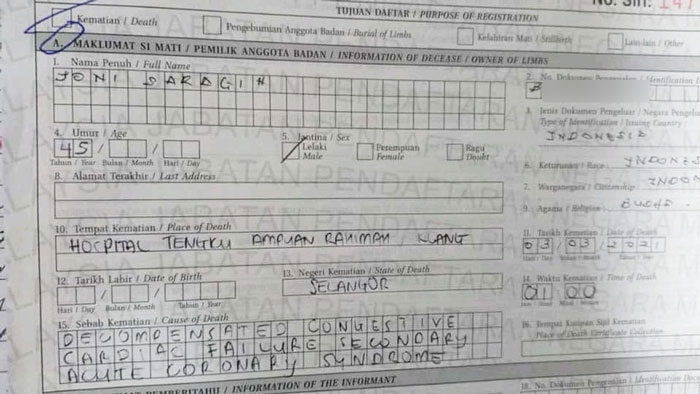 TUJUAN DAFTAR / PURPOSE OF REGISTRATION
No. Siri: 147
Kematian / Death
Pengebumian Anggota Badan / Burial of Limbs
Kelahiran Mati / Stillbirth
Lain-lain / Other
A. MAKLUMAT SI MATI / PEMILIK ANGGOTA BADAN / INFORMATION OF DECEASE / OWNER OF LIMBS
1. Nama Penuh / Full Name
JONI SARAGIH
2. No. Dokumen Pengenalan / Identification
B
3. Jenis Dokumen Pengenalan / Negara Pengeluar
Type of Identification / Issuing Country
INDONESIA
4. Umur / Age
45
Tahun / Year Bulan / Month Hari / Day
5. Jantina / Sex
Lelaki
Male
Perempuan
Female
Ragu
Doubt
6. Keturunan / Race
INDONES
7. Warganegara / Citizenship
INDON
8. Alamat Terakhir / Last Address
9. Agama / Religion
BUDHA
10. Tempat Kematian / Place of Death
HOSPITAL TENGKU AMPUAN RAHIMAH KLANG
11. Tarikh Kematian / Date of Death
03 03 2021
12. Tarikh Lahir / Date of Birth
Hari / Day Bulan / Month Tahun / Year
13. Negeri Kematian / State of Death
SELANGOR
14. Waktu Kematian / Time of Death
01 00
15. Sebab Kematian / Cause of Death
DECOMPENSATED CONGESTIVE
CARDIAC FAILURE SECONDARY
ACUTE CORONARY SYNDROME
16. Tempat Kutipan Sijil Kematian
Place of Death Certificate Collection
MAKLUMAT PEMBERITAHU / INFORMATION OF THE INFORMANT
18. No. Dokumen Pengenalan / Identification